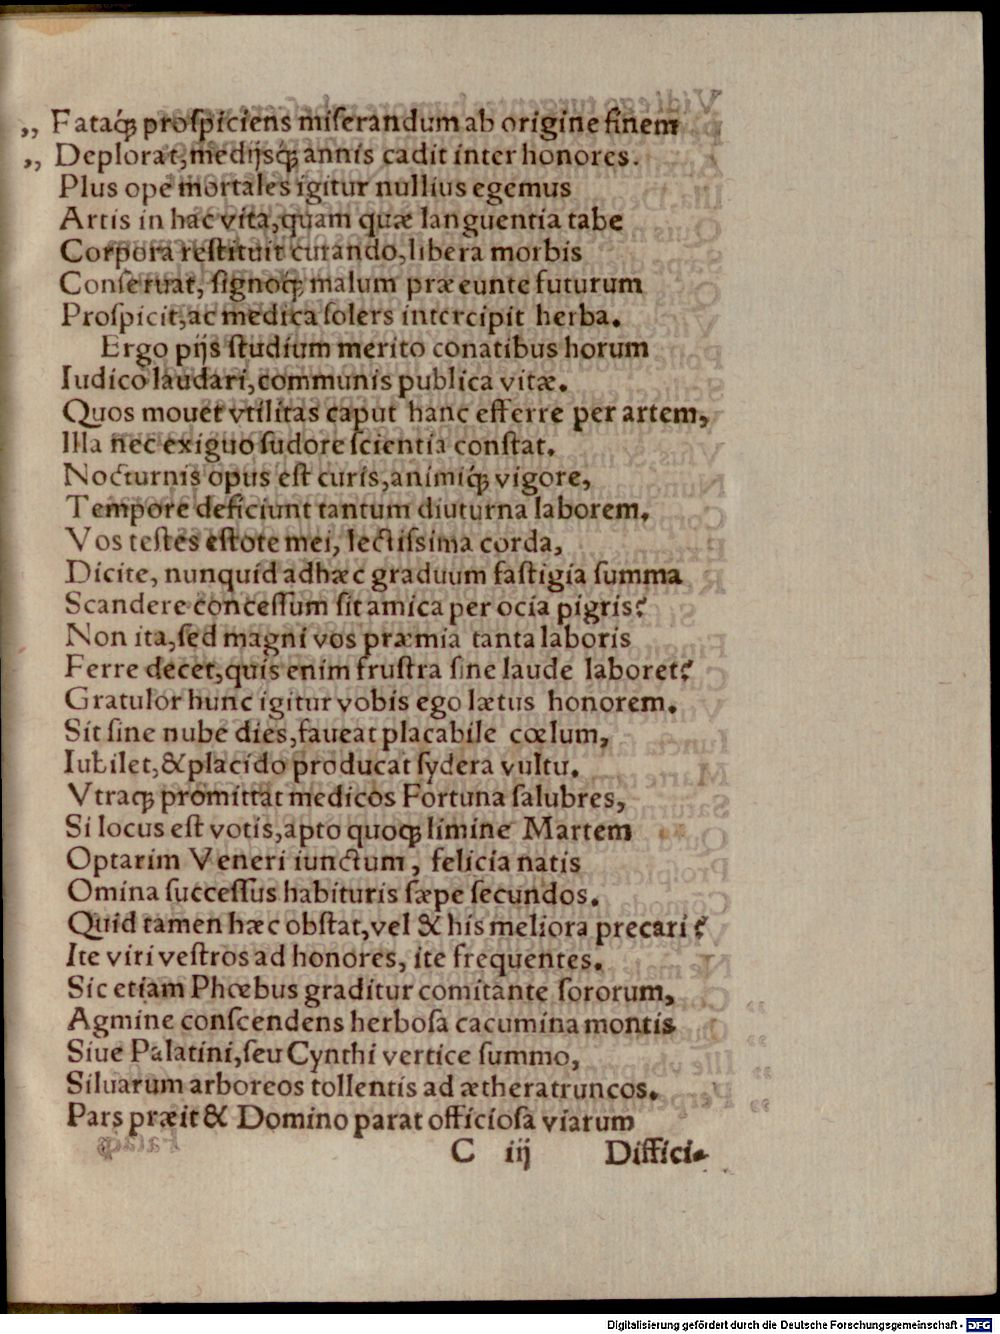 „ Fataq́; proſpiciens miſerandum ab origine finem
„ Deplorat, medijsq́; annis cadit inter honores.
Plus ope mortales igitur nullius egemus
Artis in hac vita, quam quæ languentia tabe
Corpora reſtituit curando, libera morbis
Conſeruat, ſignoq́; malum præeunte futurum
Proſpicit, ac medica ſolers intercipit herba.
Ergo pijs ſtudium merito conatibus horum
Iudico laudari, communis publica vitæ.
Quos mouet vtilitas caput hanc efferre per artem,
Illa nec exiguo ſudore ſcientia conſtat.
Nocturnis opus eſt curis, animiq́; vigore,
Tempore deficiunt tantum diuturna laborem.
Vos teſtes eſtote mei, lectiſsima corda,
Dicite, nunquid adhæc graduum faſtigia ſumma
Scandere conceſſum ſit amica per ocia pigris?
Non ita, ſed magni vos præmia tanta laboris
Ferre decet, quis enim fruſtra ſine laude laboret?
Gratulor hunc igitur vobis ego lætus honorem.
Sit ſine nube dies, faueat placabile cœlum,
Iubilet, & placido producat ſydera vultu.
Vtraq; promittat medicos Fortuna ſalubres,
Si locus eſt votis, apto quoq; limine Martem
Optarim Veneri iunctum, felicia natis
Omina ſucceſſus habituris ſæpe ſecundos.
Quid tamen hæc obſtat, vel & his meliora precari?
Ite viri veſtros ad honores, ite frequentes.
Sic etiam Phœbus graditur comitante ſororum,
Agmine conſcendens herboſa cacumina montis
Siue Palatini, ſeu Cynthi vertice ſummo,
Siluarum arboreos tollentis ad æthera truncos.
Pars præit & Domino parat officioſa viarum
C iij Diffici-
Digitalisierung gefördert durch die Deutsche Forschungsgemeinschaft - DFG